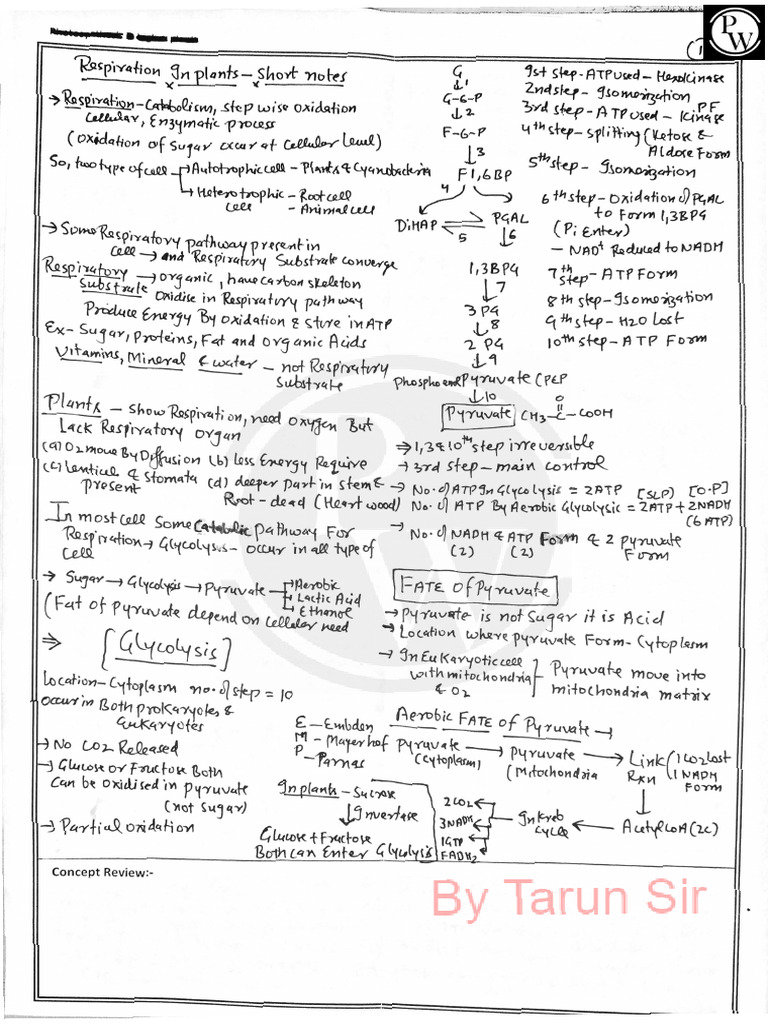 PW
Respiration In plants - Short notes
→ Respiration - Catabolism, step wise oxidation
Cellular, Enzymatic process
(Oxidation of Sugar occur at Cellular Level)
So, two type of cell → Autotrophic cell - Plants & Cyanobacteria
→ Heterotrophic - Root cell
cell - Animal cell
→ Some Respiratory pathway present in
cell → and Respiratory Substrate converge
Respiratory → organic, have carbon skeleton
Substrate Oxidise in Respiratory pathway
Produce Energy By Oxidation & Store in ATP
Ex - Sugar, Proteins, Fat and Organic Acids
Vitamins, Mineral & water - not Respiratory
Substrate
Plants - Show Respiration, need Oxygen But
Lack Respiratory Organ
(a) O2 move By Diffusion (b) less Energy Require
(c) Lenticel & Stomata (d) deeper part in stem &
present Root - dead (Heart wood)
In most cell Some Catabolic pathway For
Respiration → Glycolysis - occur in all type of
Cell
→ Sugar → Glycolysis → Pyruvate → Aerobic
→ Lactic Acid
→ Ethanol
(Fat of Pyruvate depend on Cellular need
⇒ [Glycolysis]
Location - Cytoplasm no. of step = 10
occur in Both prokaryotes &
Eukaryotes
→ No CO2 Released
→ Glucose or Fructose Both
Can be oxidised in Pyruvate
(not Sugar)
→ Partial oxidation
G
↓1
G-6-P
↓2
F-6-P
↓3
F1,6BP
4
DiHAP ⇌ PGAL
5 ↓6
1,3BPG
↓7
3 PG
↓8
2 PG
↓9
Phosphoenol Pyruvate (PEP
↓10
Pyruvate CH3-C-COOH
O
1st step - ATP used - Hexokinase
2nd step - Isomerization
3rd step - ATP used - PF Kinase
4th step - splitting (Ketose &
Aldose Form
5th step - Isomerization
6th step - Oxidation of PGAL
to Form 1,3BPG
(Pi Enter)
- NAD+ Reduced to NADH
7th step - ATP Form
8th step - Isomerization
9th step - H2O Lost
10th step - ATP Form
⇒ 1,3 & 10th step irreversible
→ 3rd step - main control
→ No. of ATP In Glycolysis = 2ATP [SLP] [O.P]
No. of ATP By Aerobic Glycolysis = 2ATP + 2NADH
(6 ATP)
→ No. of NADH & ATP Form & 2 pyruvate
(2) (2) Form
FATE of Pyruvate
→ Pyruvate is not Sugar it is Acid
→ Location where pyruvate Form - Cytoplasm
→ In Eukaryotic cell
with mitochondria
& O2
Pyruvate move into
mitochondria matrix
Aerobic FATE of Pyruvate →
E - Embden
M - Mayerhof
P - Parnas
Pyruvate → Pyruvate → Link (1 CO2 Lost
(Cytoplasm) (Mitochondria Rxn 1 NADH
Form
↓
Acetyl CoA (2C)
← In Kreb
Cycle
2CO2
3NADH
1GTP
FADH2
In plants - Sucrose
↓ Invertase
Glucose + Fructose
Both can Enter Glycolysis
Concept Review:-
By Tarun Sir